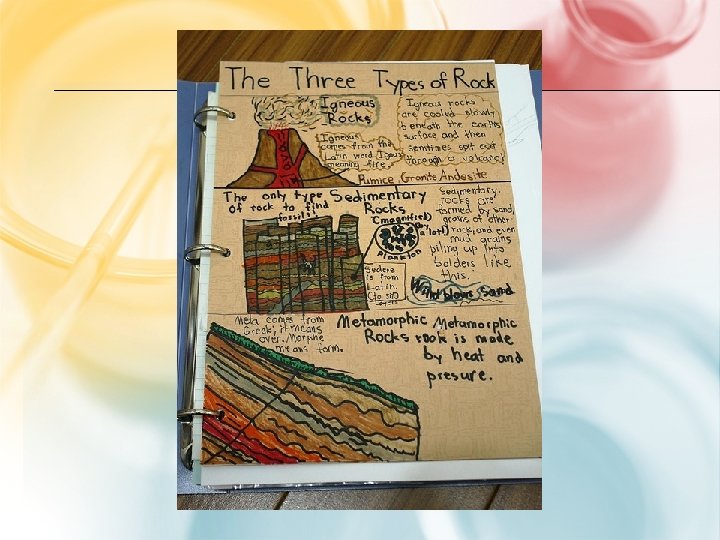 The Three Types of Rock
Igneous
Rocks
Igneous
comes from the
Latin word Ignus
meaning fire.
Igneous rocks
are cooled slowly
beneath the earths
surface and then
semtimes spit out
through a volcano
Pumice, Granite Andesite
The only type
of rock to find
fossils!
Sedimentary
Rocks
(magnified)
Plankton
Sedimentary
rocks are
formed by sand,
grains of other
rock, and even
mud grains
piling up into
bolders like
this.
Sedere
is from
Latin.
Wind blown Sand
Meta comes from
Greek; it means
over. Morphe
means form.
Metamorphic
Rocks
Metamorphic
rock is made
by heat and
presure.